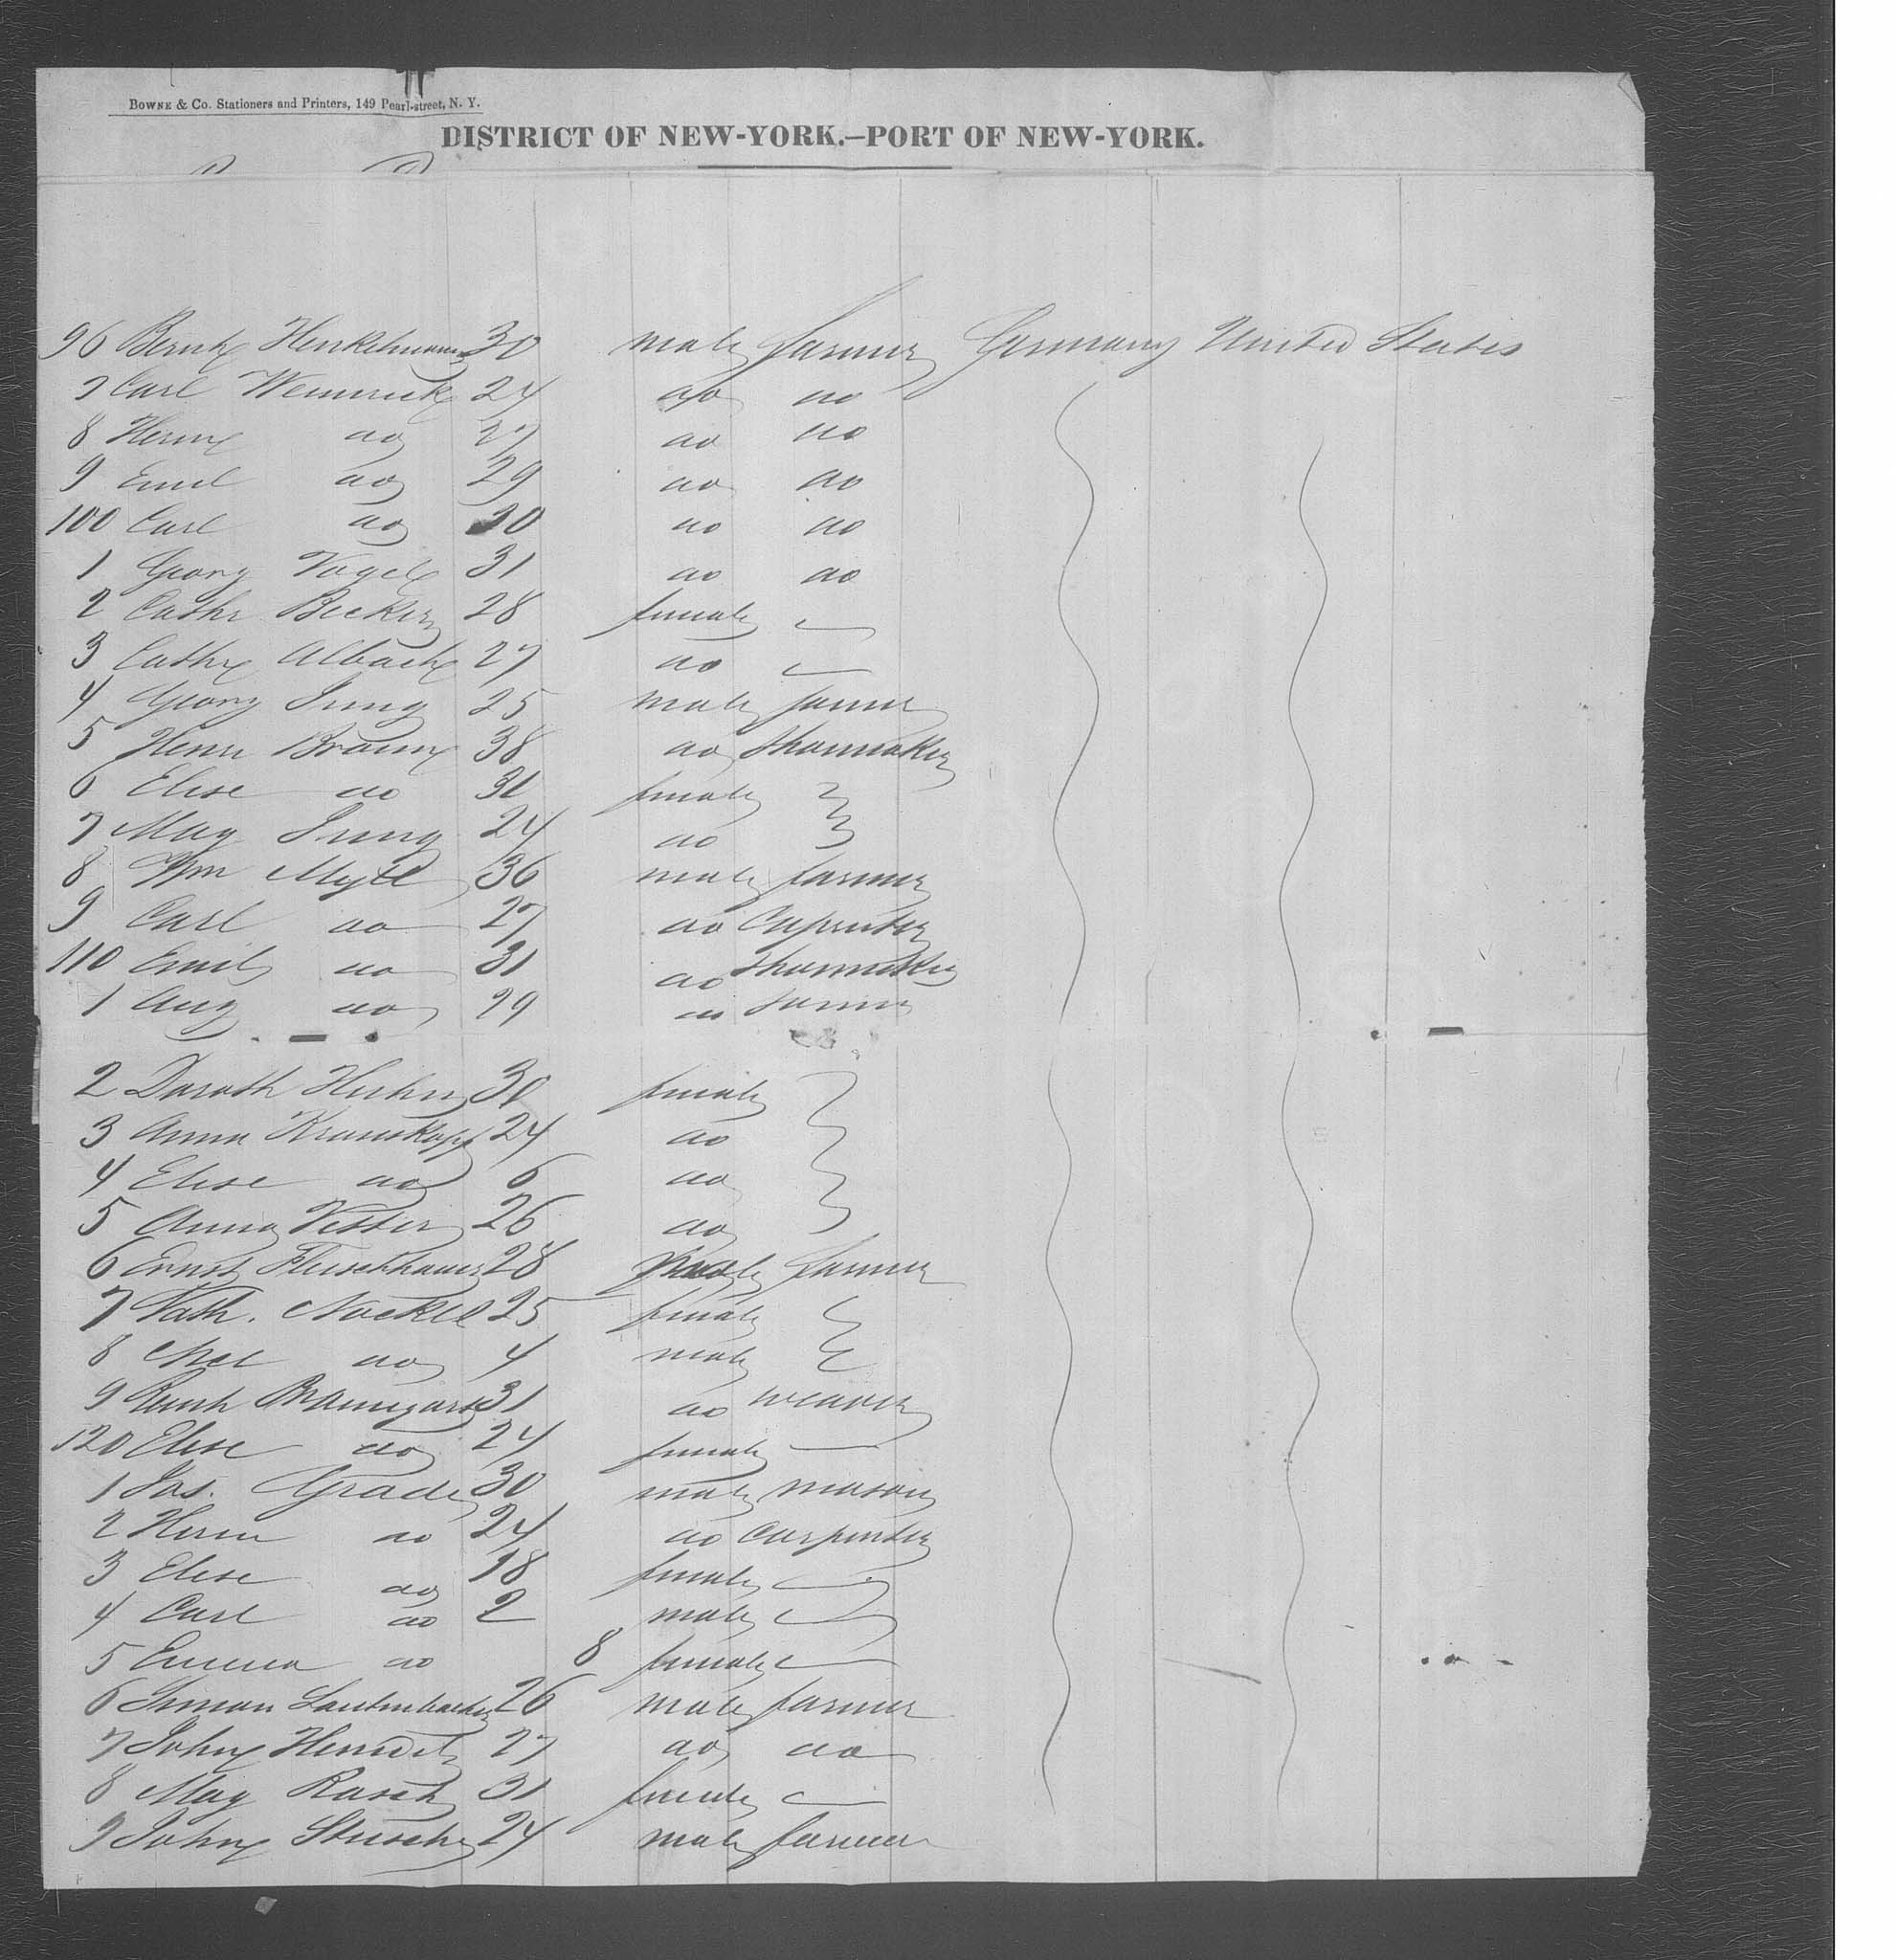 BOWNE & Co. Stationers and Printers, 149 Pearl-street, N. Y.
DISTRICT OF NEW-YORK.—PORT OF NEW-YORK.
96 Henkelmann 30 male farmer Germany United States
7 Carl 24 do do
8 Herm do 27 do do
9 Emil do 29 do do
100 Carl do 30 do do
1 Georg Vogel 31 do do
2 Cathr Becker 28 female
3 Cathr Albach 27 do
4 Georg Jung 25 male farmer
5 Henr Braun 38 do Shoemaker
6 Elise do 31 female
7 Mag Jung 24 do
8 Wm 36 male farmer
9 Carl do 27 do Carpenter
110 Emil do 31 do Shoemaker
1 Aug do 29 do farmer
2 Doroth Huhn 30 female
3 Anna Krauskopf 24 do
4 Elise do 6 do
5 Anna Vetter 26 do
6 Ernst Fleischhauer 28 male farmer
7 Kath. Nockel 25 female
8 do 4 male
9 31 do weaver
120 Elise do 24 female
1 Jos. Grade 30 male mason
2 Herm do 24 do Carpenter
3 Elise do 18 female
4 Carl do 2 male
5 Emma do 8 female
6 Simon Lautenbacher 26 male farmer
7 John 27 do do
8 Mag Rasch 31 female
9 John 24 male farmer